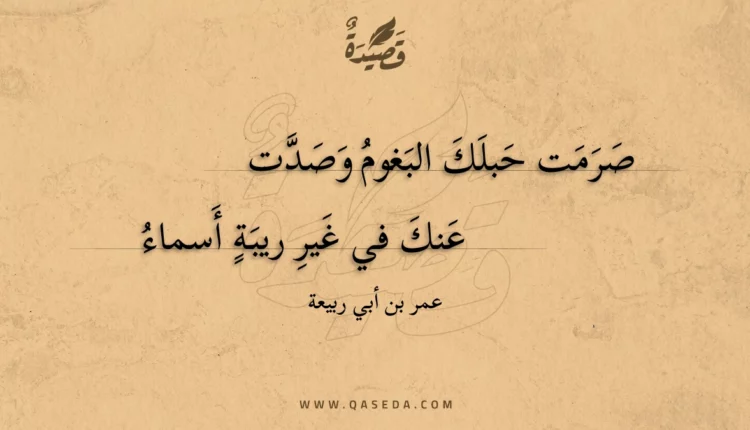 قَصِيدَةٌ
صَرَمَت حَبلَكَ البَغومُ وَصَدَّت
عَنكَ في غَيرِ ريبَةٍ أَسماءُ
عمر بن أبي ربيعة
WWW.QASEDA.COM